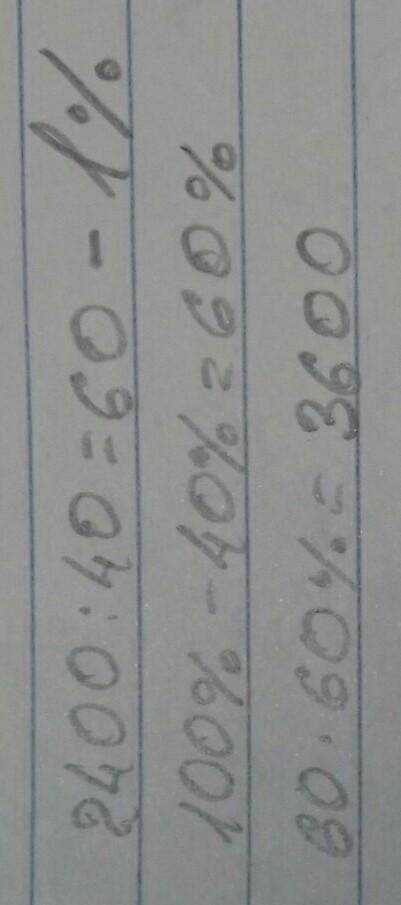 2400:40=60-1%
100%-40%=60%
60·60%=3600